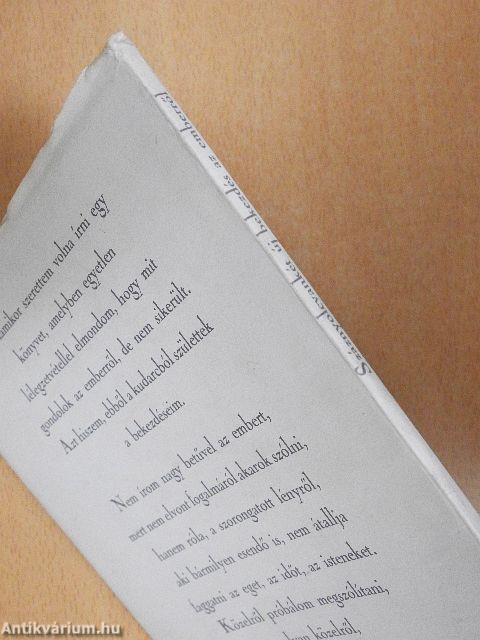 Száznyolcvankét új bekezdés az emberről
szerettem volna írni egy
könyvet, amelyben egyetlen
lélegzetvétellel elmondom, hogy mit
gondolok az emberről, de nem sikerült.
Azt hiszem, ebből a kudarcból születtek
a bekezdéseim.
Nem írom nagy betűvel az embert,
mert nem elvont fogalmáról akarok szólni,
hanem róla, a szorongatott lényről,
aki bármilyen esendő is, nem átallja
faggatni az eget, az időt, az isteneket.
Közelről próbálom megszólítani,
közelről,
Antikvárium.hu